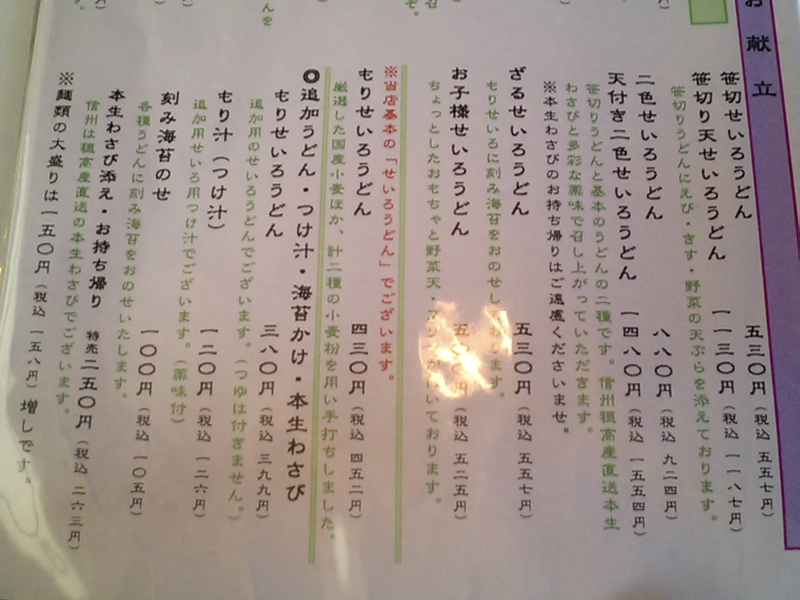 お献立
笹切せいろうどん 五三〇円（税込 五五七円）
笹切り天せいろうどん 一一三〇円（税込 一一八七円）
笹切りうどんにえび・きす・野菜の天ぷらを添えております。
二色せいろうどん 八八〇円（税込 九二四円）
天付き二色せいろうどん 一四八〇円（税込 一五五四円）
笹切りうどんと基本のうどんの二種です。信州穂高産直送本生
わさびと多彩な薬味で召し上がっていただきます。
※本生わさびのお持ち帰りはご遠慮くださいませ。
ざるせいろうどん 五三〇円（税込 五五七円）
もりせいろに刻み海苔をおのせしております。
お子様せいろうどん 五〇〇円（税込 五二五円）
ちょっとしたおもちゃと野菜天・プリンが付いております。
※当店基本の「せいろうどん」でございます。
もりせいろうどん 四三〇円（税込 四五二円）
厳選した国産小麦ほか、計二種の小麦粉を用い手打ちしました。
◎追加うどん・つけ汁・海苔かけ・本生わさび
もりせいろうどん 三八〇円（税込 三九九円）
追加用のせいろうどんでございます。（つゆは付きません。）
もり汁（つけ汁） 一二〇円（税込 一二六円）
追加用せいろ用つけ汁でございます。（薬味付）
刻み海苔のせ 一〇〇円（税込 一〇五円）
各種うどんに刻み海苔をおのせいたします。
本生わさび添え・お持ち帰り 特売 二五〇円（税込 二六三円）
信州は穂高産直送の本生わさびでございます。
※麺類の大盛りは一五〇円（税込 一五八円）増しです。